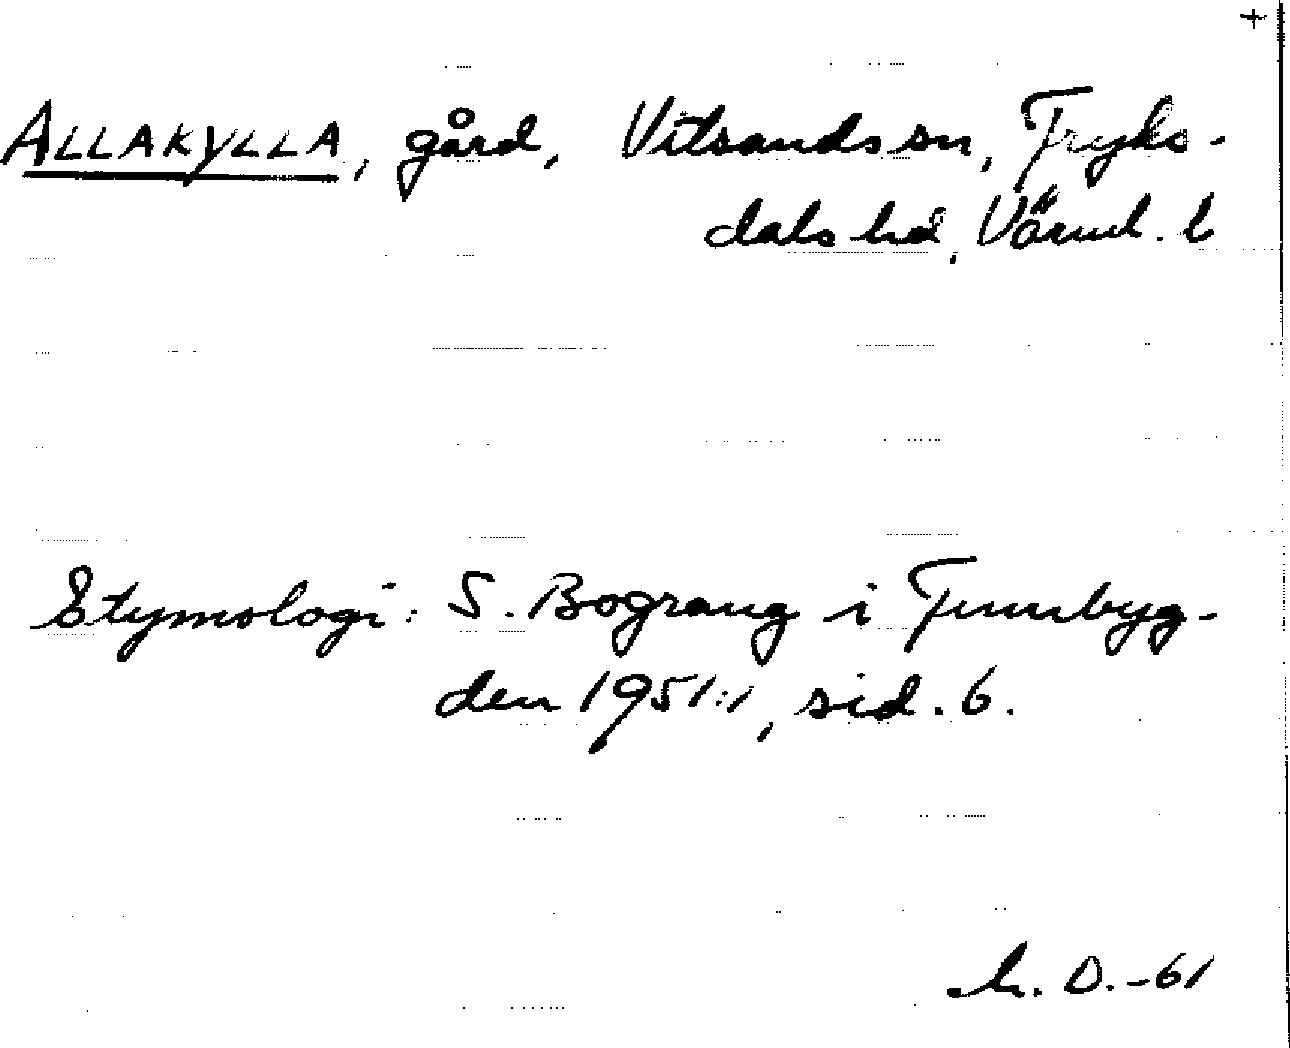 +
ALLAKYLLA, gård, Vitsands sn, Fryks-
dals hd, Värml. l
Etymologi: S. Bograng i Finnbyg-
den 1951:1, sid. 6.
D. -61